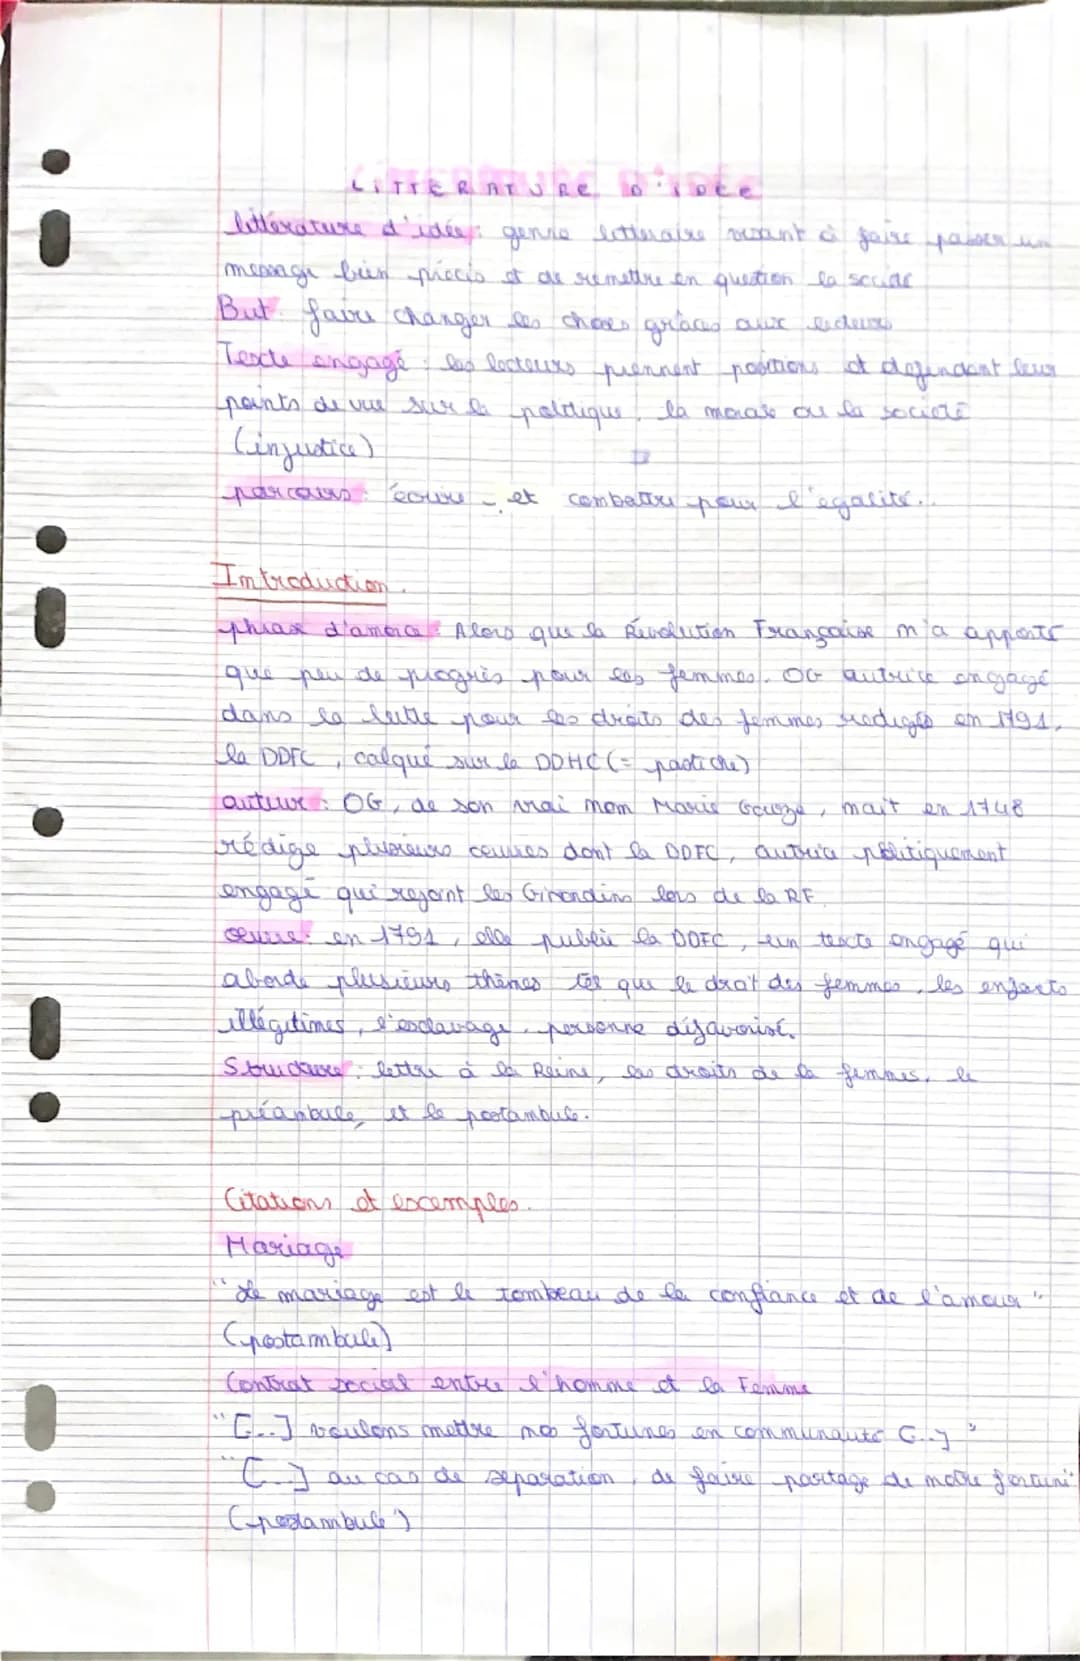 LITTERATURE D'IDÉE
littérature d'idée : genre littéraire visant à faire passer un
message bien précis et de remettre en question la société
But : faire changer les choses grâces aux lecteurs
Texte engagé : les lecteurs prennent positions et défendent leur
points de vue sur la politique, la morale ou la société
(injustice)
parcours : écrire et combattre pour l'égalité.
Introduction.
phrase d'amorce : Alors que la Révolution Française n'a apporté
que peu de progrès pour les femmes. OG autrice engagé
dans la lutte pour les droits des femmes rédigés en 1791,
la DDFC, calqué sur la DDHC (= pastiche)
auteur : OG, de son vrai nom Marie Gouze, nait en 1748
rédige plusieurs œuvres dont la DDFC, autrice politiquement
engagé qui rejoint les Girondins lors de la RF.
œuvre : en 1791, elle publie la DDFC, un texte engagé qui
aborde plusieurs thèmes tel que le droit des femmes, les enfants
illégitimes, l'esclavage, personne défavorisé.
Structure : lettre à la Reine, les droits de la femmes, le
préambule, et le postambule.
Citations et exemples.
Mariage
"Le mariage est le tombeau de la confiance et de l'amour"
(postambule)
Contrat social entre l'homme et la Femme
"[...] voulons mettre nos fortunes en communauté [...]"
"[...] au cas de séparation, de faire partage de notre fortune"
(postambule)